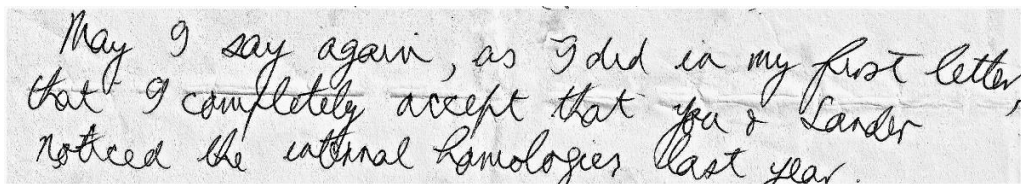 May I say again, as I did in my first letter,
that I completely accept that you & Lander
noticed the internal homologies last year.